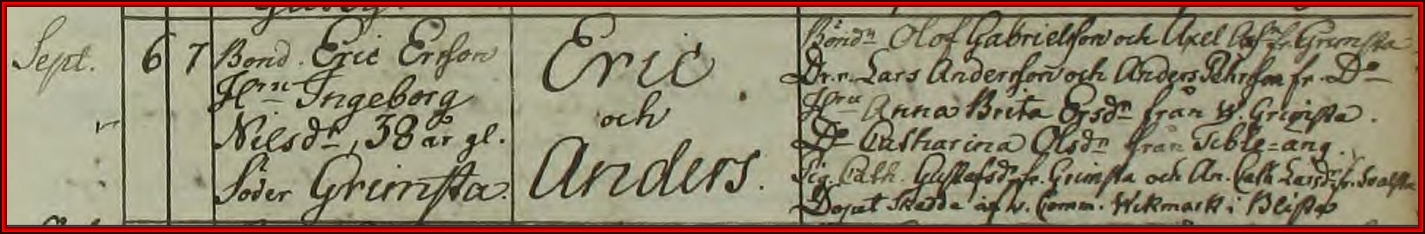 Sept. 6 7
Bond. Eric Ersson
H:ru Ingeborg
Nilsd:r, 38 år gl.
Söder Grimsta.
Eric
och
Anders.
Bönd:n Olof Gabrielsson och Axel fr. Grimsta
Dr.r. Lars Andersson och Anders Pehrson fr. D:o
H:ru Anna Brita Ersd:r från W. Grimsta.
D:o Catharina Olsd:r från Tible-äng.
Pig. Cath. Gustafsd:r fr. Grimsta och An. Cath. Larsd:r fr.
Dopet skedde af v. Comm. Wikmark i